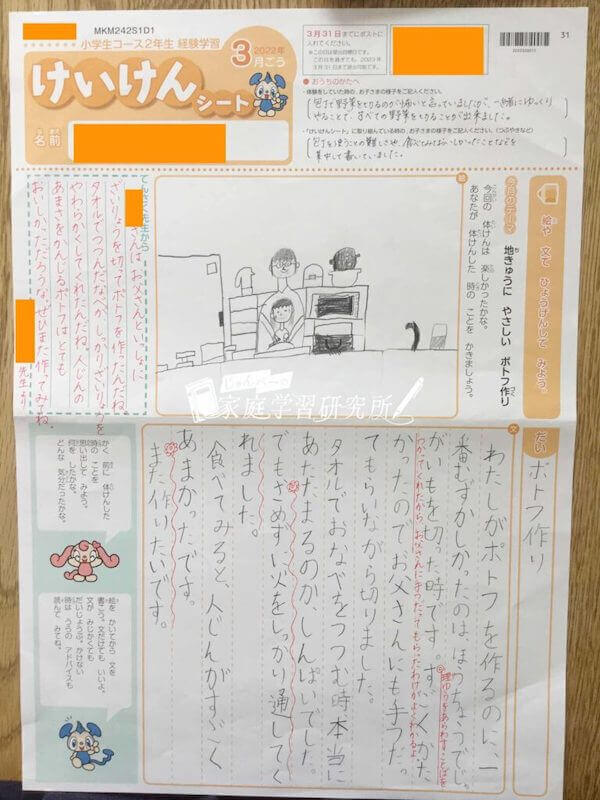 MKM242S1D1
小学生コース2年生 経験学習
2022年
3月ごう
けいけん
シート
名前
3月31日までにポストに
入れてください。
31
おうちのかたへ
・体験をしていた時の、お子さまの様子をご記入ください。
包丁で野菜を切るのが怖いと言っていましたが、一緒にゆっくり
やることで、すべての野菜を切ることが出来ました。
・「けいけんシート」に取り組んでいる時の、お子さまの様子をご記入ください。(つぶやきなど)
包丁を使うことの難しさや、食べてみておいしかったことなどを
集中して書いていました。
絵や 文で ひょうげんして みよう。
今月のテーマ 地きゅうに やさしい ポトフ作り
今回の 体けんは 楽しかったかな。
あなたが 体けんした 時の ことを かきましょう。
絵
てんさく先生から
さんは お父さんといっしょに
ざいりょうを切ってポトフを作ったんだね。
タオルでつつんだなべが、しっかりざいりょうを
やわらかくしてくれたんだね。人じんの
あまさをかんじるポトフはとても
おいしかっただろうな。ぜひまた作ってみてね。
先生より
じゅんぺーの
家庭学習研究所
文
だい
ポトフ作り
わたしがポトフを作るのに、一
番むずかしかったのは、ほうちょうでじゃ
がいもを切った時です。すごくかた
かったのでお父さんにも手つだっ
てもらいながら切りました。
タオルでおなべをつつむ時本当に
あたたまるのか、しんぱいでした。
でもさめずに火をしっかり通してく
れました。
食べてみると、人じんがすごく
あまかったです。
また作りたいです。
理ゆうをあらわすことばを
つかってくれたから、お父さんに手つだってもらったわけがよくわかるよ
かく 前に 体けんした
時の ことを
思い出して みよう。
何を したかな。
どんな 気分だったかな。
絵を かいてから 文を
書こう。文だけでも いいよ。
文が みじかくても
だいじょうぶ。かけない
時は うらの アドバイスも
読んで みてね。